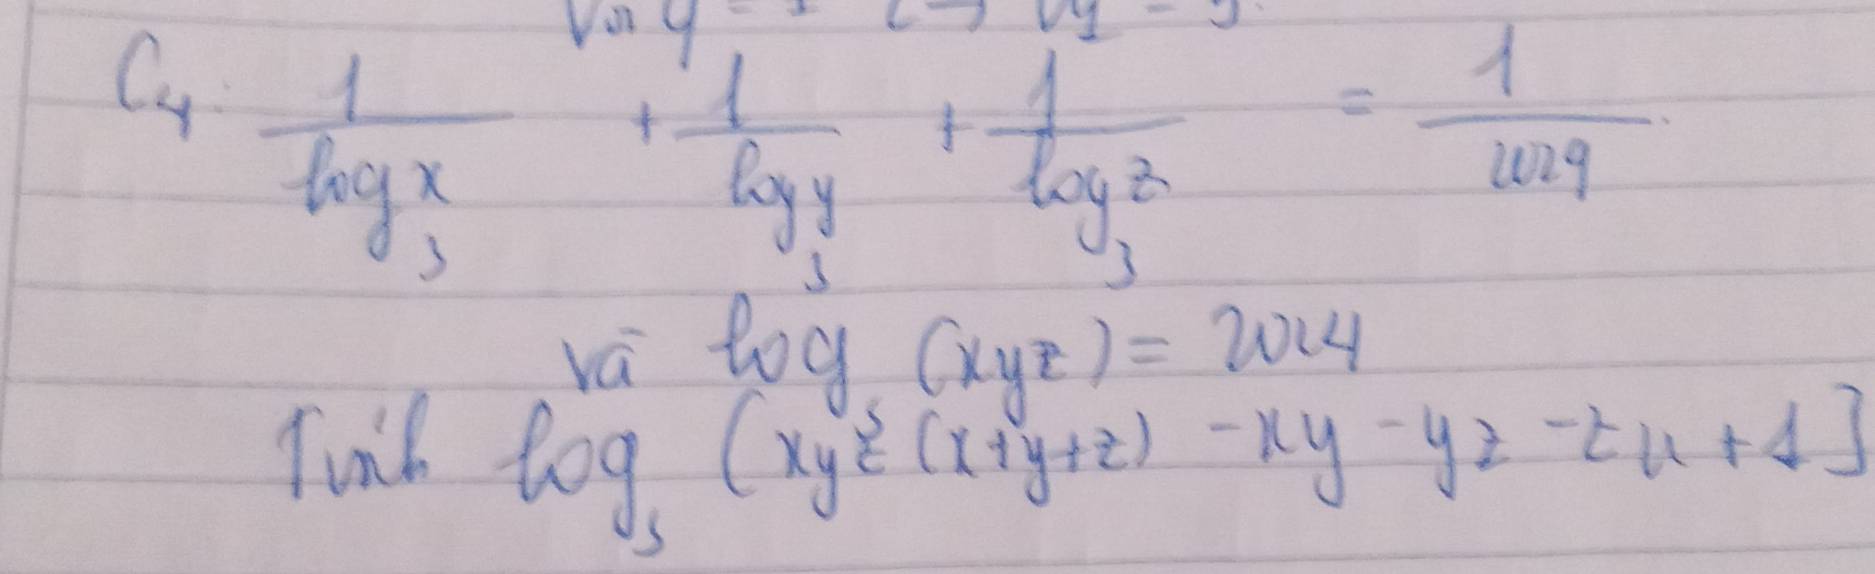 C₄: \frac{1}{\log_3 x} + \frac{1}{\log_3 y} + \frac{1}{\log_3 z} = \frac{1}{2029}
và log₃ (xyz) = 2024
Tính log₃ (xyz (x+y+z) - xy - yz - zx + 1]